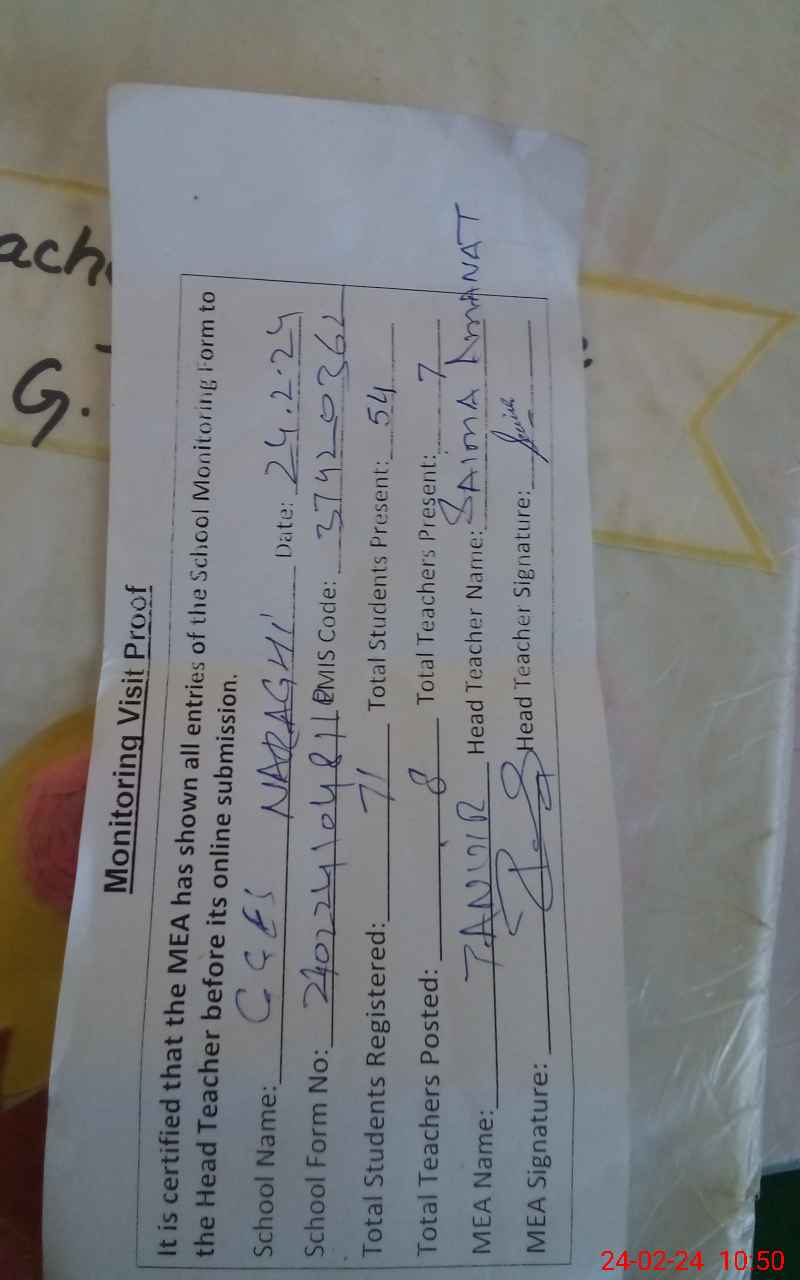 ach
G.
Monitoring Visit Proof
It is certified that the MEA has shown all entries of the School Monitoring Form to
the Head Teacher before its online submission.
School Name: GGES NARAGHI Date: 24.2.24
School Form No: EMIS Code: 37420362
Total Students Registered: 71 Total Students Present: 54
Total Teachers Posted: 8 Total Teachers Present: 7
MEA Name: TANVIR Head Teacher Name: SAIMA AMANAT
MEA Signature: Head Teacher Signature:
24-02-24 10:50